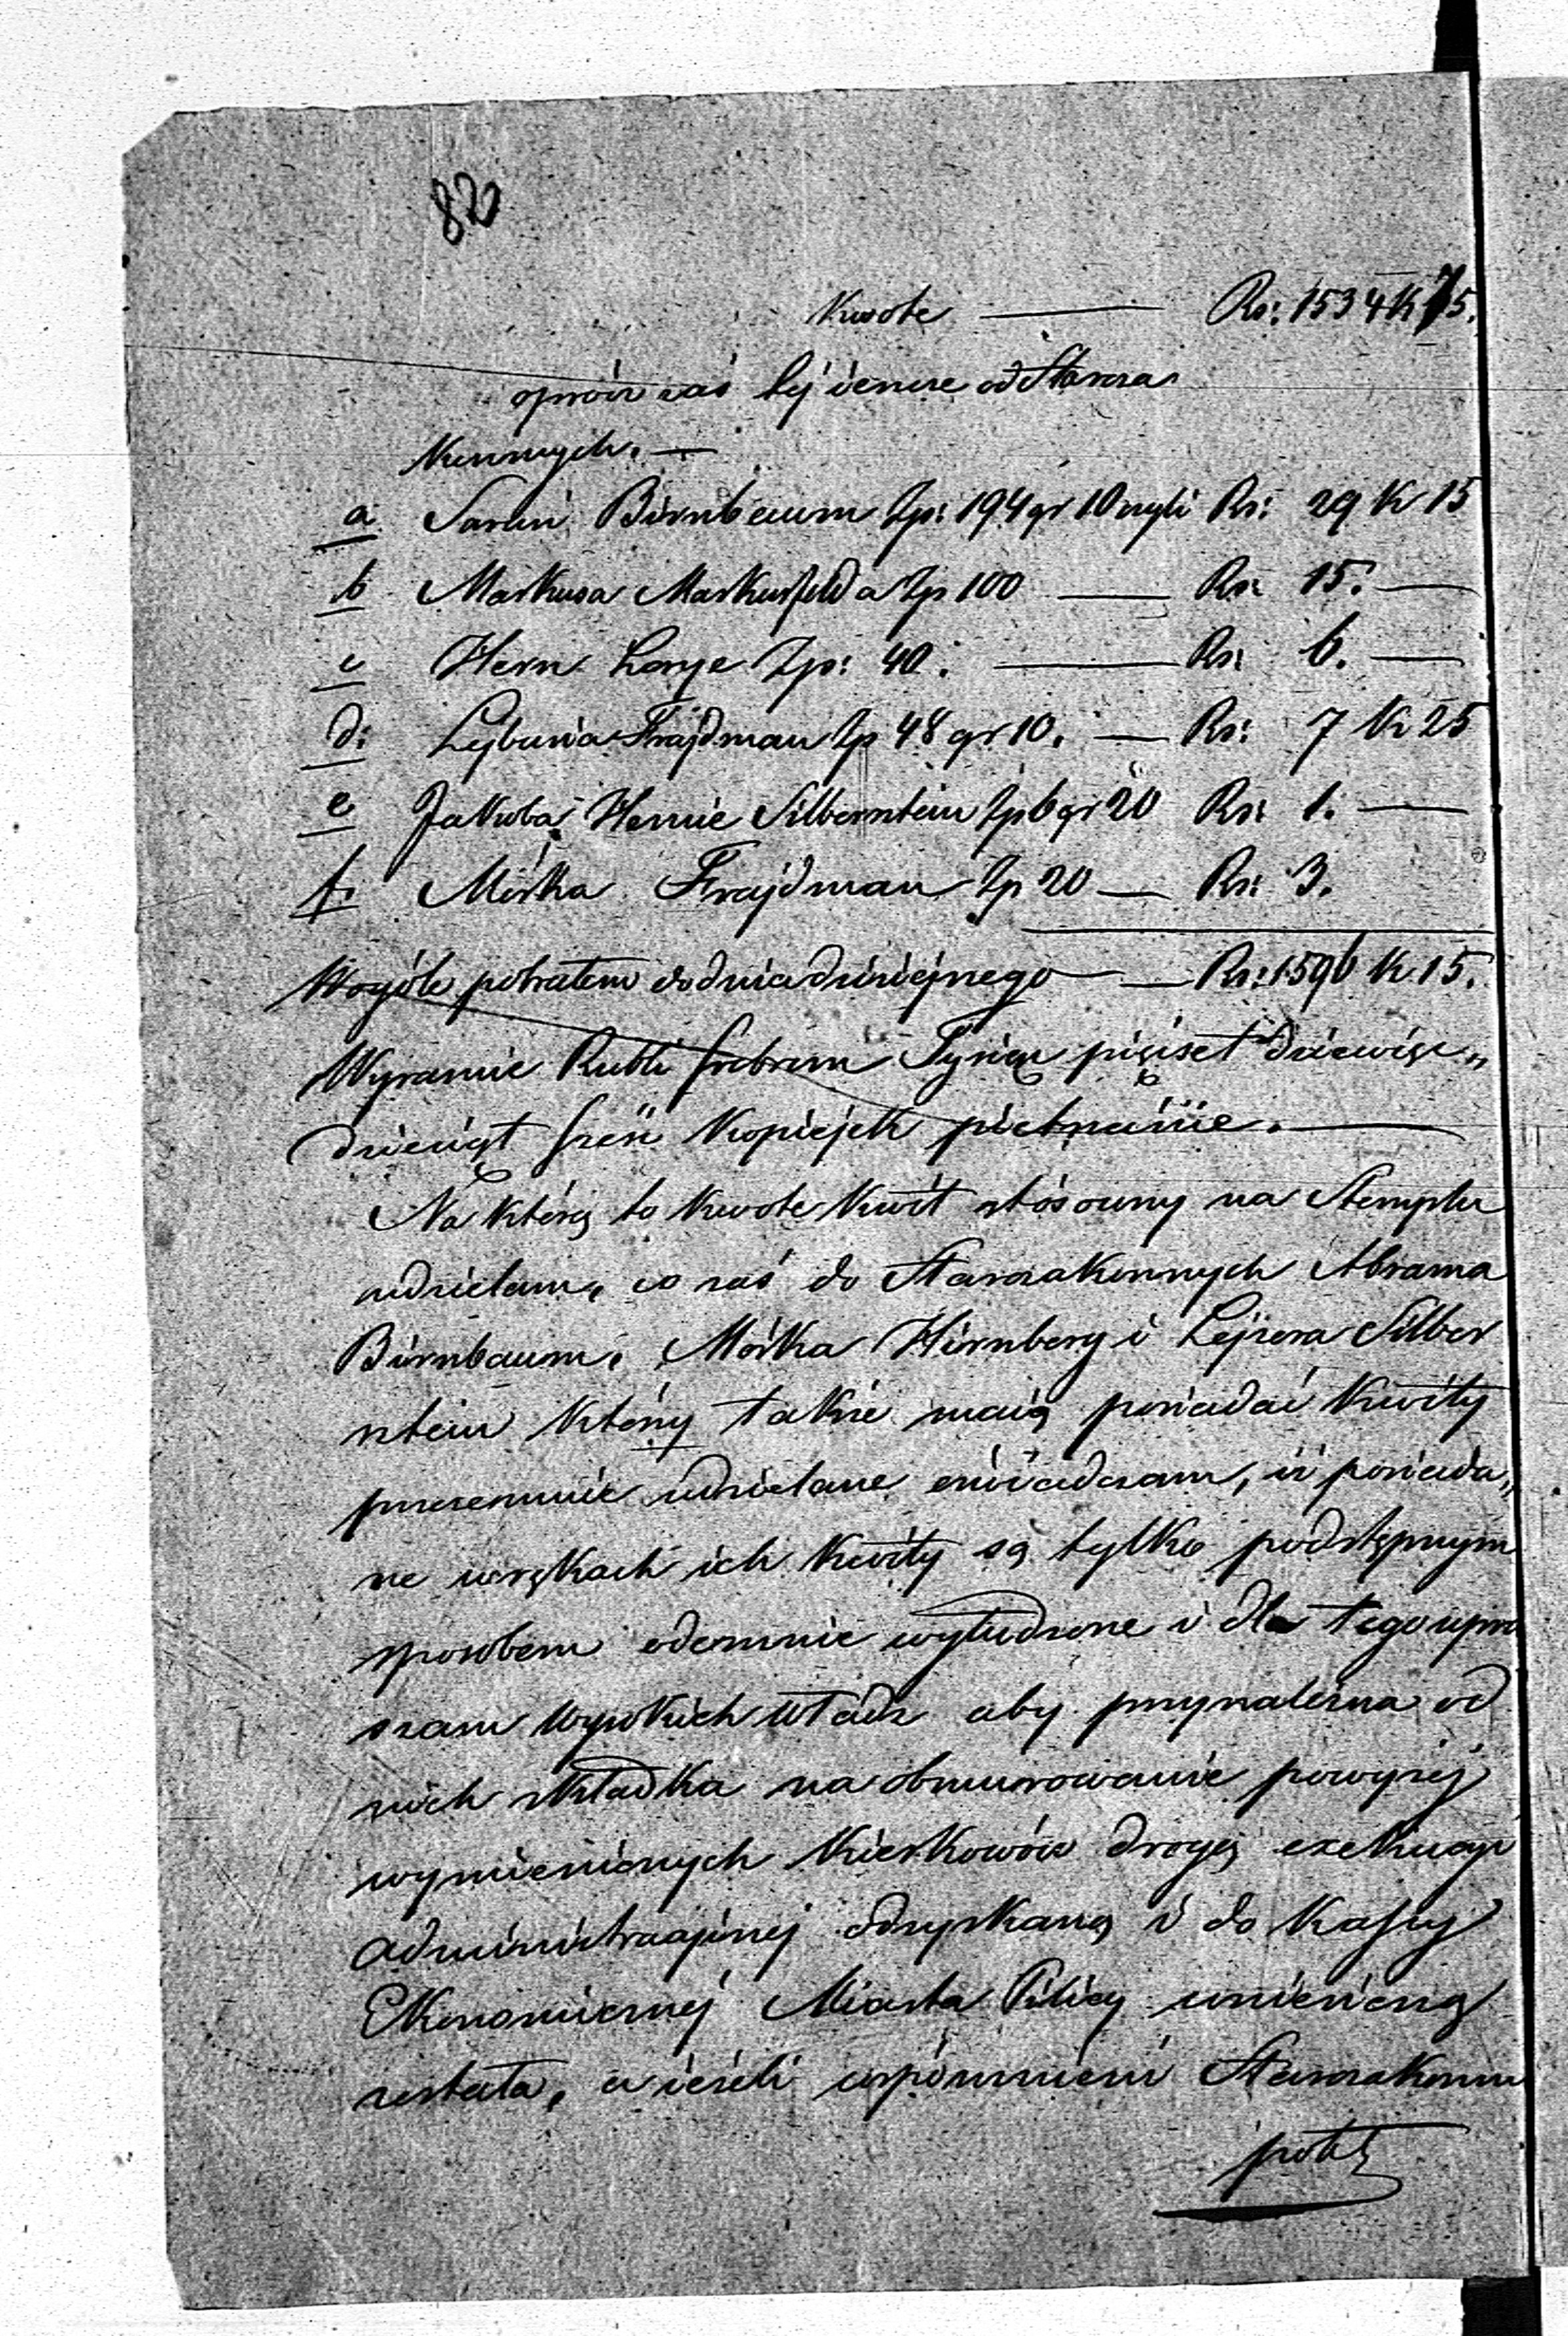 820
Kwotę — Rs: 1534 K 75.
oprócz zaś tej ieszcze od Staroza
Konnych. —
a Sarlin Birnbaum Zp: 194 gr 10 czyli Rs: 29 K 15
b Markusa Markusfelda Zp 100 — Rs: 15. —
c Hern Lorje Zp: 40. — Rs: 6. —
d: Lejbusia Frajdman Zp 48 gr 10. — Rs: 7 K 25
e Jakoba Silberstein Zp 6 gr 20 Rs: 1. —
f. Moska Frajdman Zp 20 — Rs: 3.
Wogóle pobrałem do dnia dzisiejszego — Rs: 1596 K. 15.
Wyraznie Rubli srebrem Tysiąc pięćset dziewięć„
dziesiąt sześć Kopiejek piętnaście. —
Na którą to Kwotę Kwit stósowny na Stemplu
udzielam, co zaś do Starozakonnych Abrama
Birnbaum, Moska Hirnberg i Lejzera Silber
stein którzy takze maią posiadać Kwity
przezemnie udzielane oświadczam, iż posiada„
ne w ręKach ich Kwity są tylko podstępnym
sposobem odemnie wyłudzone i dla tego upra
szam Wysokich Władz aby przynalezna od
nich składka na obmurowanie powyzej
wymienionych Kierkowów drogą exekucyi
Administracyjnej odzyskaną i do Kassy
Ekonomicznej Miasta Pilicy wniesioną
została, a ieżeli wspomnieni Starozakonni